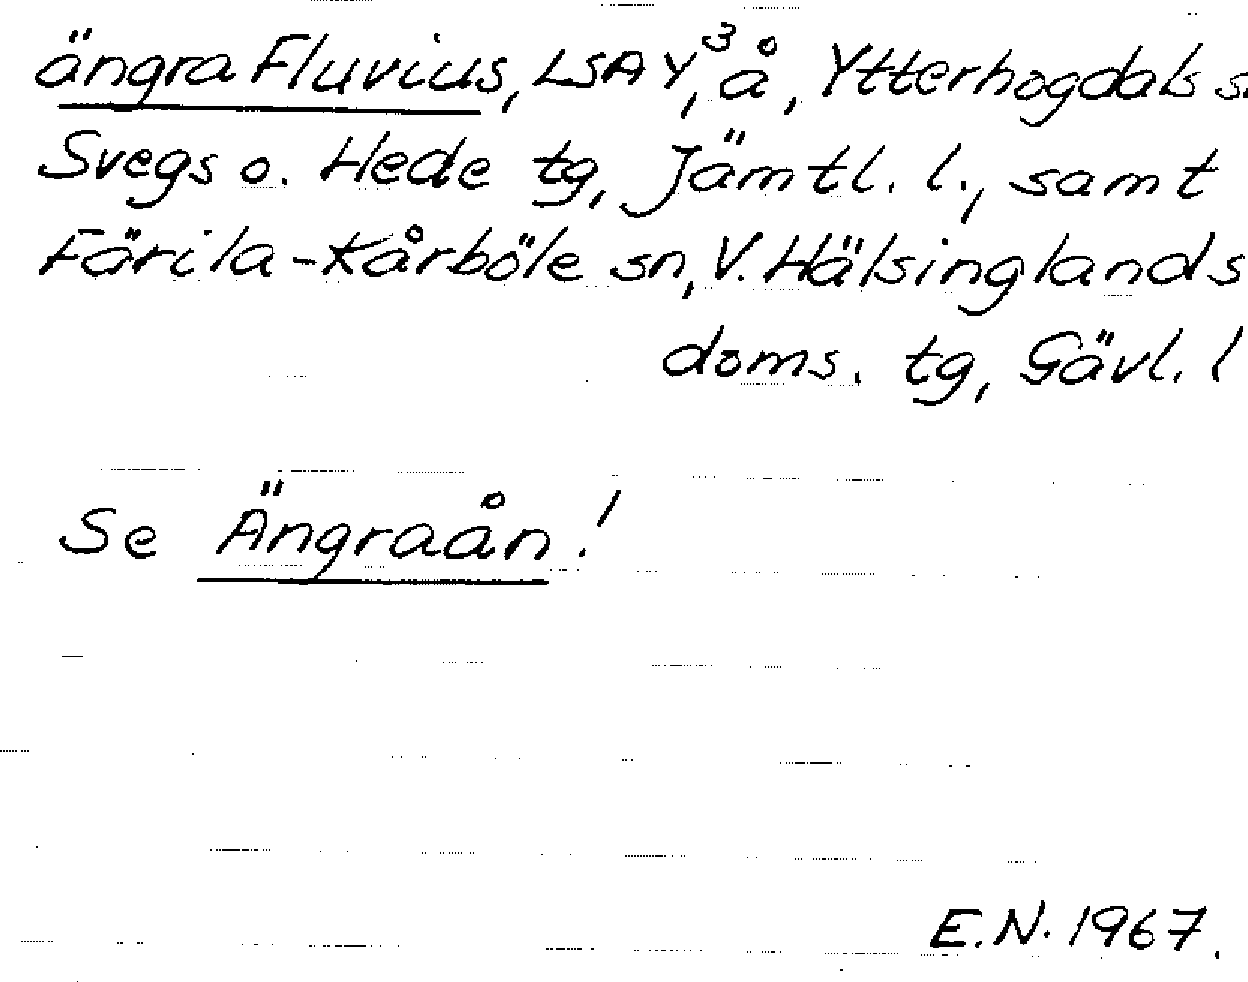 ängra Fluvius, LSA Y³, å, Ytterhogdals s
Svegs o. Hede tg, Jämtl. l., samt
Färila-Kårböle sn, V. Hälsinglands
doms. tg, Gävl. l
Se Ängraån!
E.N. 1967.